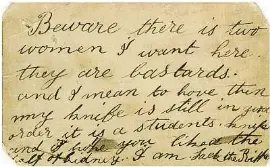 Beware there is two
women I want here
they are bastards
and I mean to have them
my knife is still in good
order it is a students knife
and I hope you liked the
half of kidney. I am Jack the Ripper